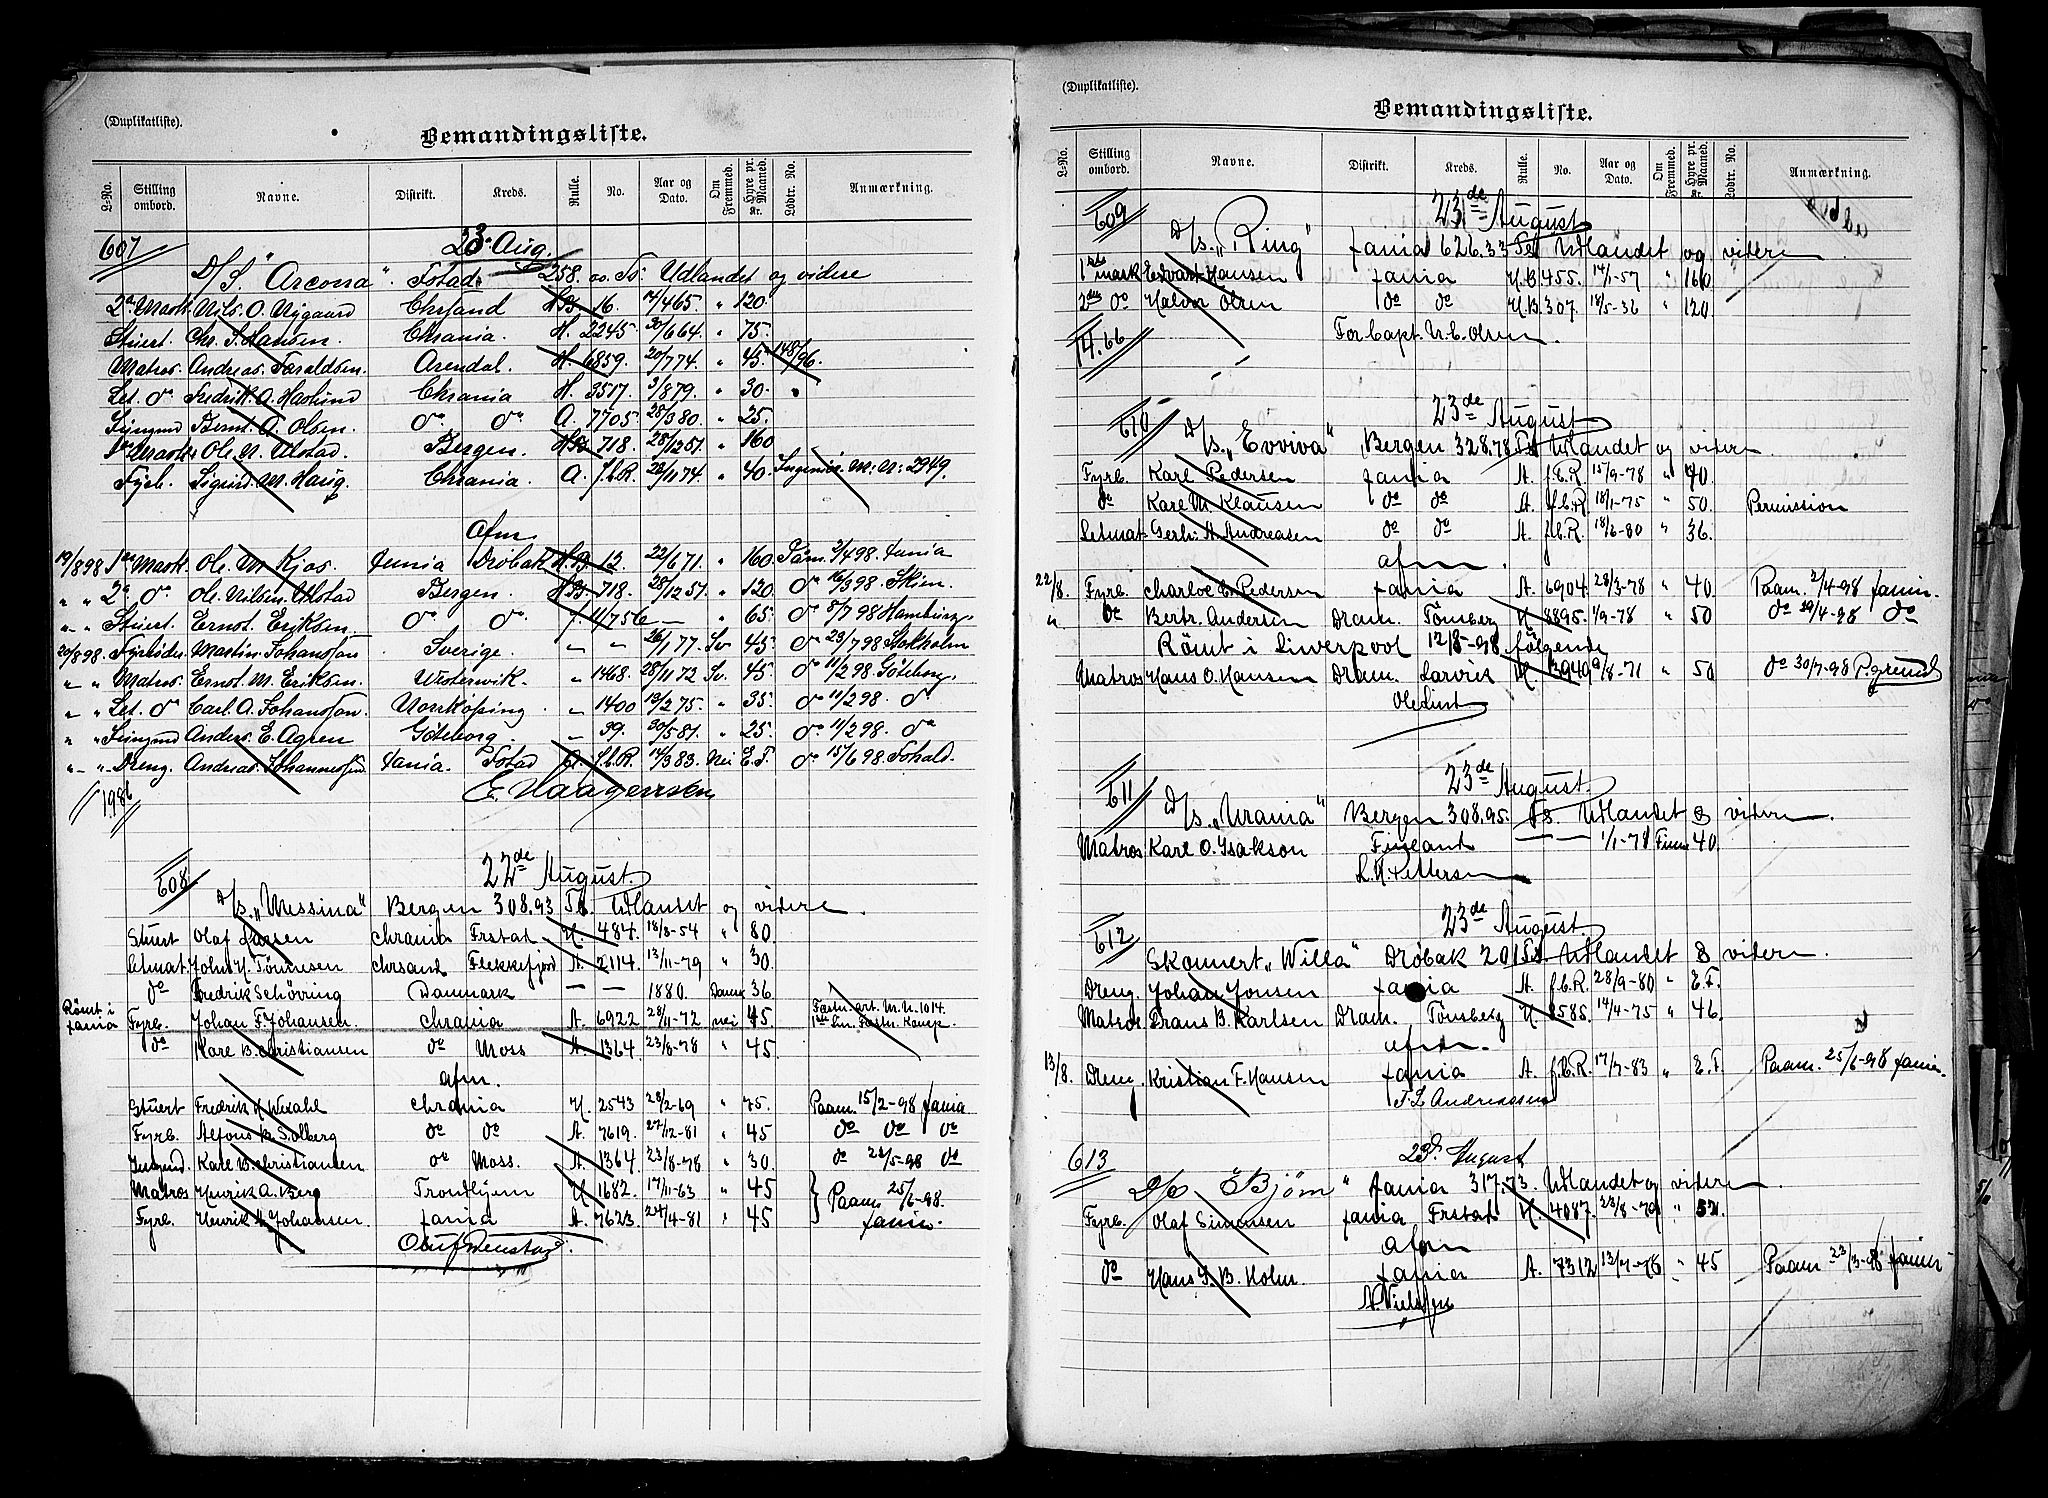 (Duplikatliste).
Bemandingsliste.
L-No. Stilling ombord. Navne. Distrikt. Kreds. Rulle. No. Aar og Dato. Om Fremmed. Hyre pr. Maaned. Kr. Lodtr. No. Anmærkning.
607 23de Aug.
D/S. "Arcona" Fstad. 258. Ts. Udlandet og videre
2n Mask. Nils. O. Nygaard Chrsand HB 16. 14/4 65. " 120.
Stuert. Chr. S. Hansen. Chrania. H. 2245 30/6 64. " 75.
Matros. Andreas Taraldsen. Arendal. H. 6859. 20/7 74. " 45. 148/96.
Let. do Fredrik. A. Havlund Chrania H. 3517. 3/8 79. " 30.
Jungmd Bernt. A. Olsen. do do A. 7705. 28/3 80. " 25.
1n Mask. Ole. N. Ulstad. Bergen. HB 718. 28/12 51. " 160
Fyrb. Sigurd. M. Haug. Chrania. A. f.b.R. 26/11 74. " 40. Ingeniør. M: N: 2949.
Afm.
19/8 98 1n Mask. Ole. M Kjos. fania Drøbak H.B. 12. 22/6 71. " 160. Paam. 2/4 98. fania
" " 2n do Ole. Nilsen Ulstad Bergen. HB. 718. 28/12 51. " 120. do 16/3 98. Skien.
" - " Stuert. Ernst. Eriksen. do do f. 11/7 56 — " 65. do 8/7 98 Hamburg.
20/8 98. Fyrbøder Martin. Johansson. Sverige. - - 26/1 77. Sv 45. do 23/7 98 Stokholm
" " Matros. Ernst. M. Eriksen. Westerwik. - 1468. 28/11 72 Sv. 45. do 11/2 98. Göteborg.
" " Let. do Carl. A. Johansson. Norrköping - 1400 19/2 75. " 35. do 11/2 98. do
" " Jungmd Anders. E. Agren Göteborg. - 39. 30/5 81. " 25. do 11/2 98. do
" - " - Dreng. Andreas. Johannessen. fania. Fstad A. f.b.R. 14/3 83. Nei E.F. do 15/6 98. Fshald.
1986 E. Haagensen
608 22de August.
D/s. "Messina" Bergen 308.93 Ts. Udlandet og videre.
Stuert Olaf Larsen Chrania Frstad H. 484. 18/3-54 " 80.
Letmat. John M. Tønnesen Chrsand Flekkefjord A. 2114. 13/11-79 " 30.
do Fredrik Schövring Danmark — — 1880. Danm 36
Rømt i fania Fyrb. Johan F. Johansen. Chrania A. 6922 28/11-72 nei 45. Fæstn. art. M. N. 1014. 1ste Lin. Fæstn. Komp.
do Kare B. Christiansen do Moss A. 1364 23/8-78 " 45.
afm.
Stuert Fredrik H. Wexahl Chrania H. 2543 28/2-69 " 75. Paam. 15/2-98 fania
Fyrb. Alfons M. Solberg do do A. 7619. 27/12-81 " 45 do do do
Jungmd. Karl B. Christiansen do Moss. A. 1364 23/8-78 " 30. do 28/5-98 do
Matros Henrik A. Berg Trondhjem H 1682. 17/11-63 " 45 } Paam. 25/6-98.
Fyrb. Henrik A. Johansen. fania A. 7623. 24/4-81 " 45 fania.
Oluf Wenstad.
(Duplikatliste).
Bemandingsliste.
L-No. Stilling ombord. Navne. Distrikt. Kreds. Rulle. No. Aar og Dato. Om Fremmed. Hyre pr. Maaned. Kr. Lodtr. No. Anmærkning.
609 23de August
D/s. "Ring" fania 626.33 Ts. Udlandet og videre
1ste mask Edvart Hansen fania H.B. 455. 14/1-57 " 160
2den do Halvor Olsen do do H.B. 307. 18/5-36 " 120
14.66 For Capt. N. C. Olsen.
610 23de August
D/s. "Evviva" Bergen 328.78 Ts. Udlandet og videre.
Fyrb. Karl Pedersen fania A. f.b.R. 15/9-78 " 40.
do Karl M. Klausen do do A. f.b.R. 18/1-75 " 50. Permission
Letmat. Gerh: A. Andreasen do do A. f.b.R. 18/6-80 " 36.
afm.
22/8. Fyrb. Charles C. Pedersen fania A. 6904. 28/3-78 " 40. Paam. 2/4-98 fania.
" do Bertr. Andersen Dram. Tønsberg H. 8895. 1/9-78 " 50 do 29/4-98 do
Rømt i Liverpool 12/8-98 følgende
Matros Hans O. Hansen Dram. Larvik H. 3940 9/8-71 " 50 do 30/7-98 P.grund
Ole Lind
611 23de August.
D/s. "Urania" Bergen 308.95. Ts. Udlandet & videre.
Matros Karl O. Isakson Finland — — 1/1-78 Finn 40.
L. H. Pettersen
612 23de August.
Skonnert "Willa" Drøbak 201 Ts. Udlandet & videre.
Dreng. Johan Jonsen fania A. f.b.R. 28/9-80 " E.F.
Matros Frans B. Karlsen Dram. Tønsberg H. 8585. 14/4-75 " 46.
afm.
13/8. Dreng. Kristian F. Hansen fania A. f.b.R. 17/7-83 " E.F Paam. 25/6-98 fania.
T. L. Andreassen
613 23d. August
D/S "Bjørn" fania 317,73. Udlandet og videre.
Fyrb. Olaf Simensen fania Frstad H. 4087. 23/8-79 " 52.
Afm
do Hans S. B. Holm. fania A. 7312 13/7-78 " 45 Paam. 23/3-98 fania
N. Nielsen